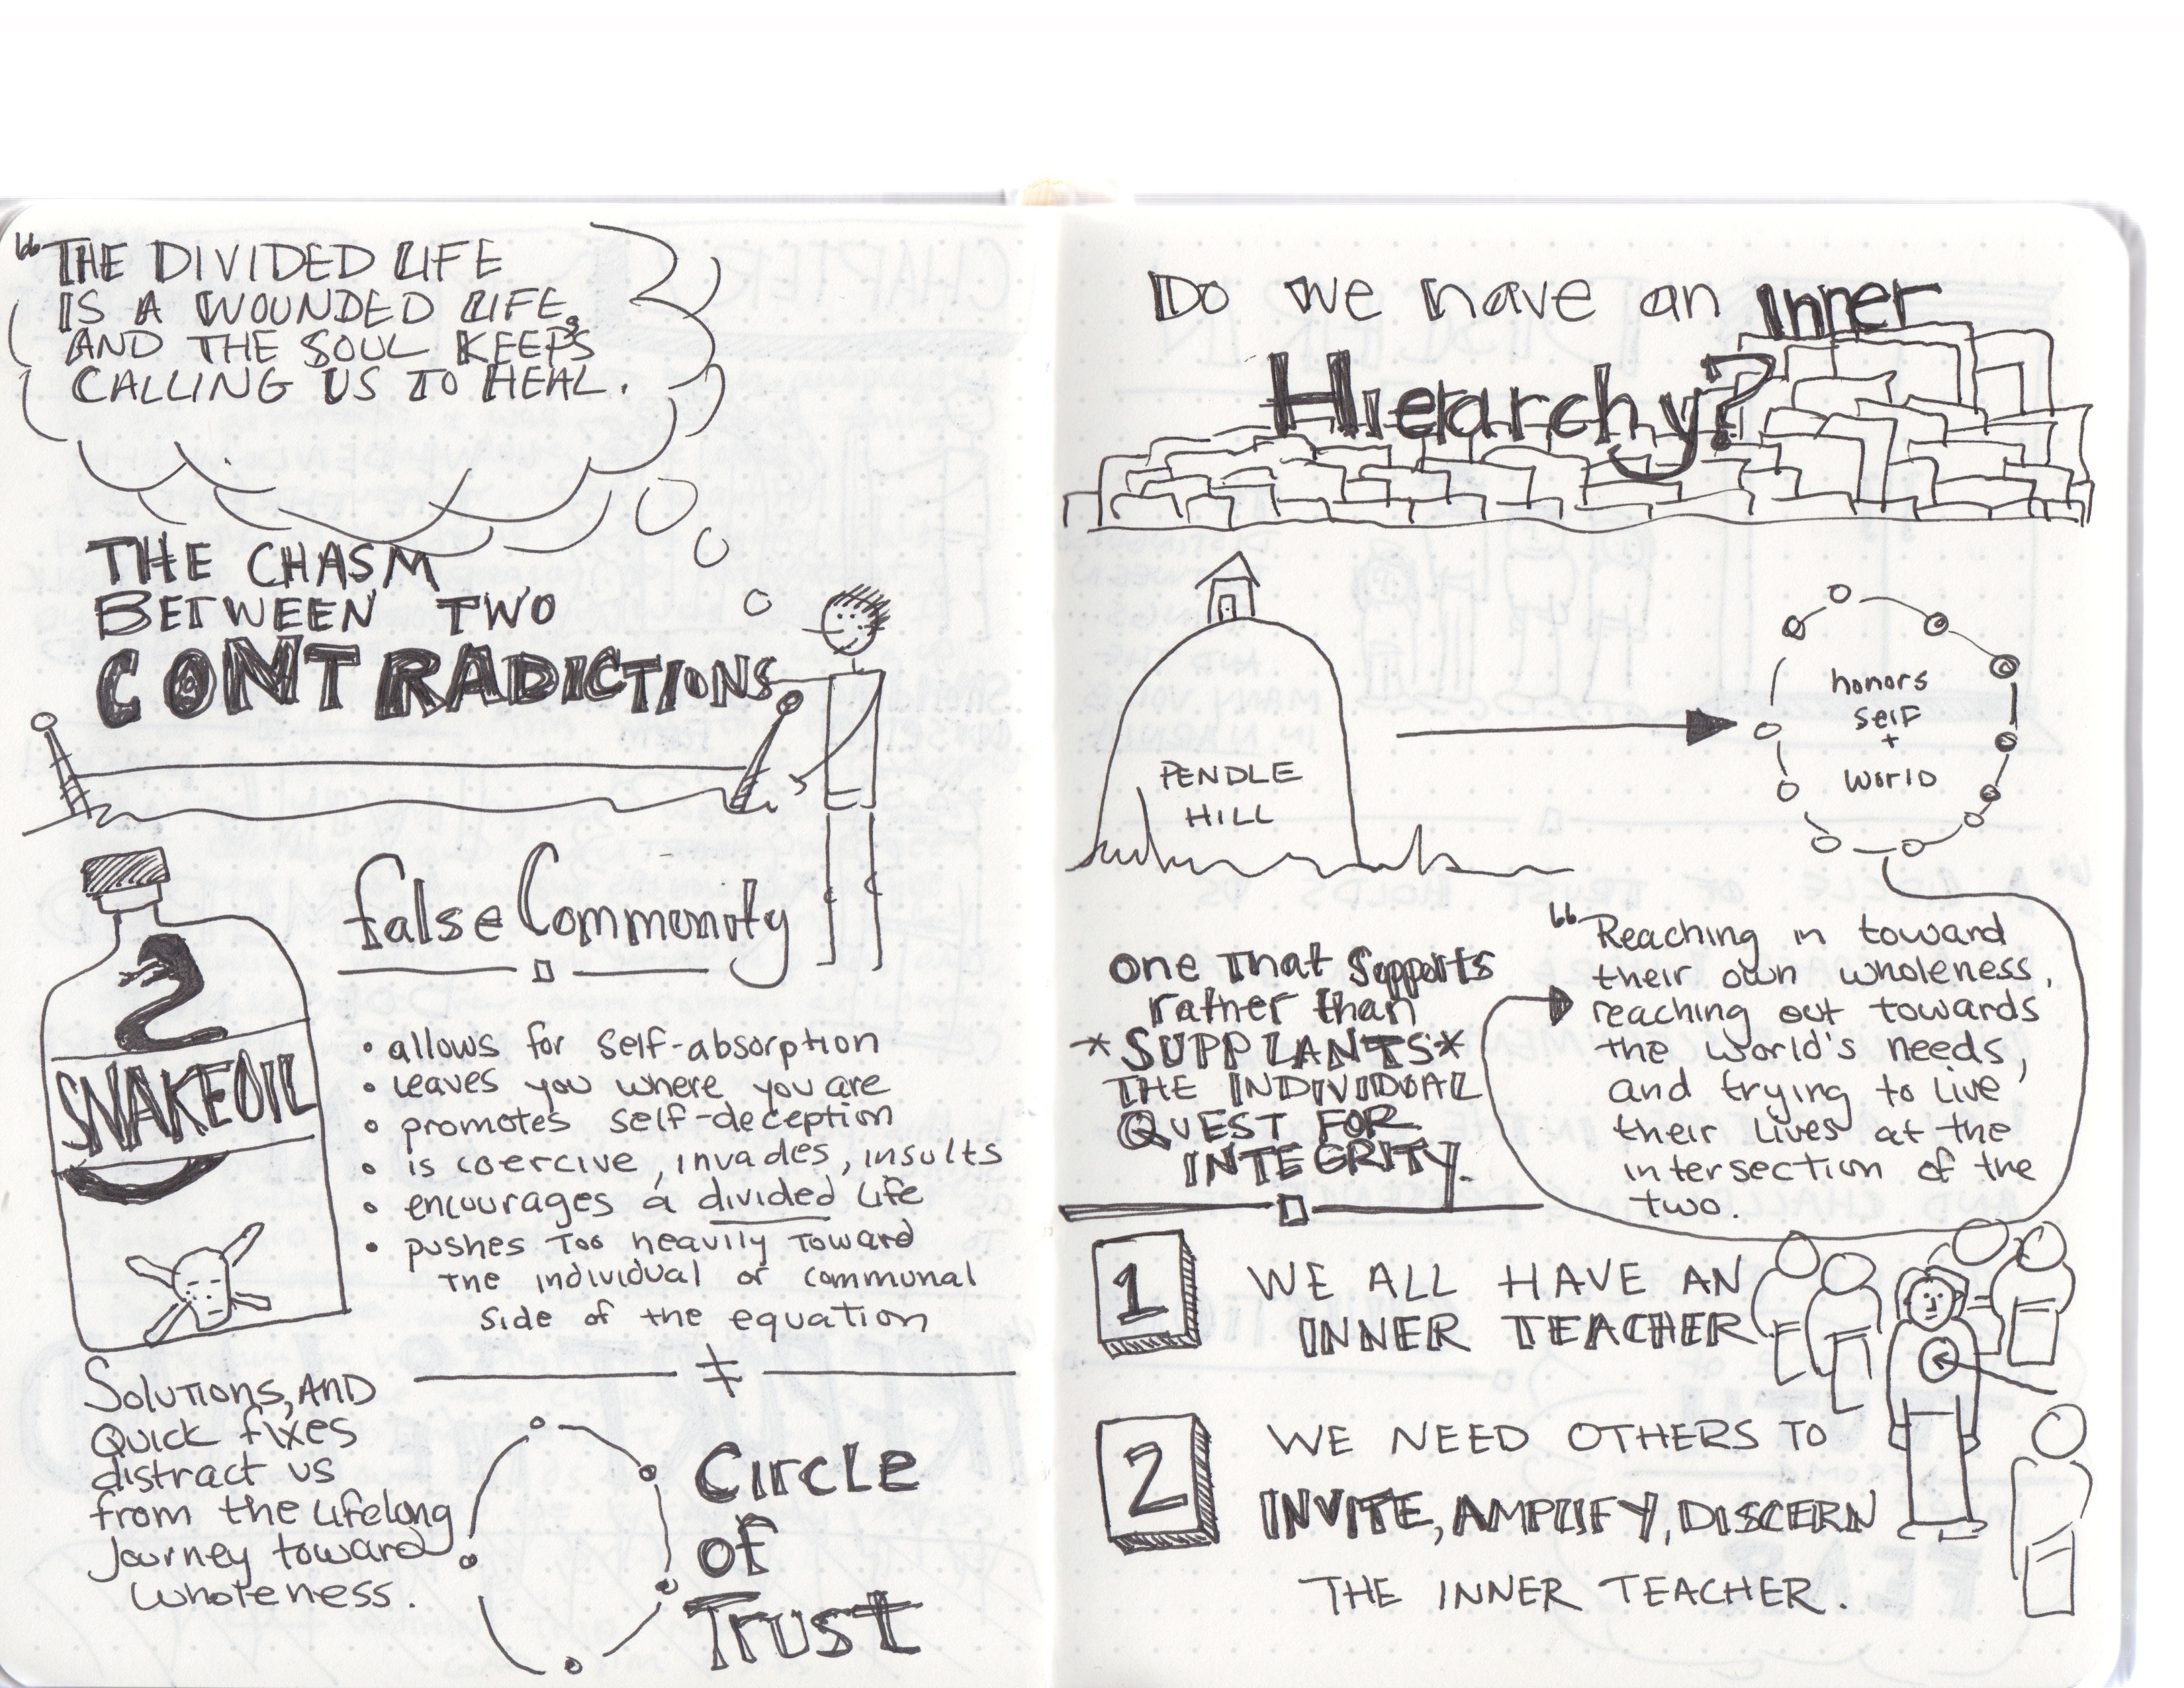 “THE DIVIDED LIFE
IS A WOUNDED LIFE,
AND THE SOUL KEEPS
CALLING US TO HEAL.
THE CHASM
BETWEEN TWO
CONTRADICTIONS
false Community
SNAKEOIL
• allows for self-absorption
• leaves you where you are
• promotes self-deception
• is coercive, invades, insults
• encourages a divided life
• pushes too heavily toward
the individual or communal
side of the equation
≠
Solutions, AND
Quick fixes
distract us
from the lifelong
journey toward
wholeness.
Circle
of
Trust
Do we have an inner
Hierarchy?
PENDLE
HILL
honors
self
+
world
one that supports
rather than
*SUPPLANTS*
THE INDIVIDUAL
QUEST FOR
INTEGRITY.
“Reaching in toward
their own wholeness,
reaching out towards
the world's needs,
and trying to live
their lives at the
intersection of the
two.
1 WE ALL HAVE AN
INNER TEACHER
2 WE NEED OTHERS TO
INVITE, AMPLIFY, DISCERN
THE INNER TEACHER.